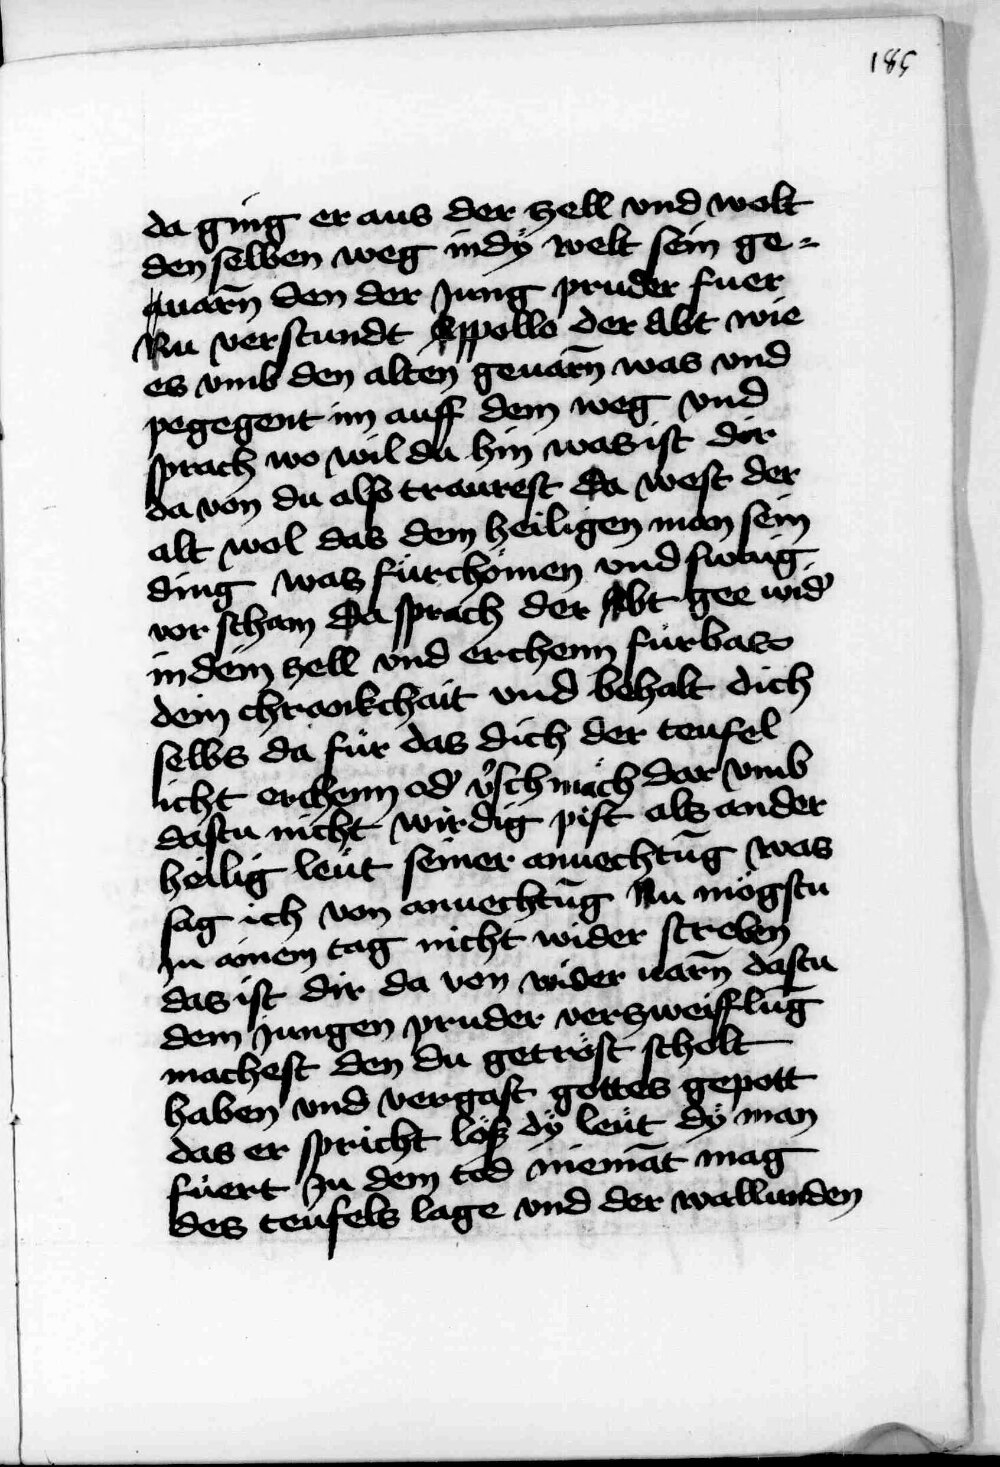 185
da ging er aus der zell vnd wolt
den selben weg in dÿ welt sein ge⸗
uarñ den der Jung pruder fuer
Nu verstundt Appollo der Abt wie
es vmb den alten geuarñ was vnd
pegegent im auff dem weg vnd
sprach wo wil du hin was ist dir
da von du also traurest Da west der
alt wol das dem heiligen man sein
ding was fürchömen vnd swaig
vor scham Da sprach der Abt gee wid̉
in dein zell vnd erchenn fürbas
dein chrankchait vnd behalt dich
selbs da für das dich der teufel
icht erchenn od̉ v̉schmäch dar vmb
dastu nicht wirdig pist als ander
heilig leüt seiner anuechtūg was
sag ich von anuechtūg Nu mögstu
zu ainem tag nicht wider streben
das ist dir da von wider uarñ dastu
dem Jungen pruder verzweifflūg
machest den du getröst scholt
haben vnd vergast gottes gepott
das er spricht lös dÿ leüt dÿ man
füert zu dem tod niemāt mag
des teüfels lage vnd der wallunden